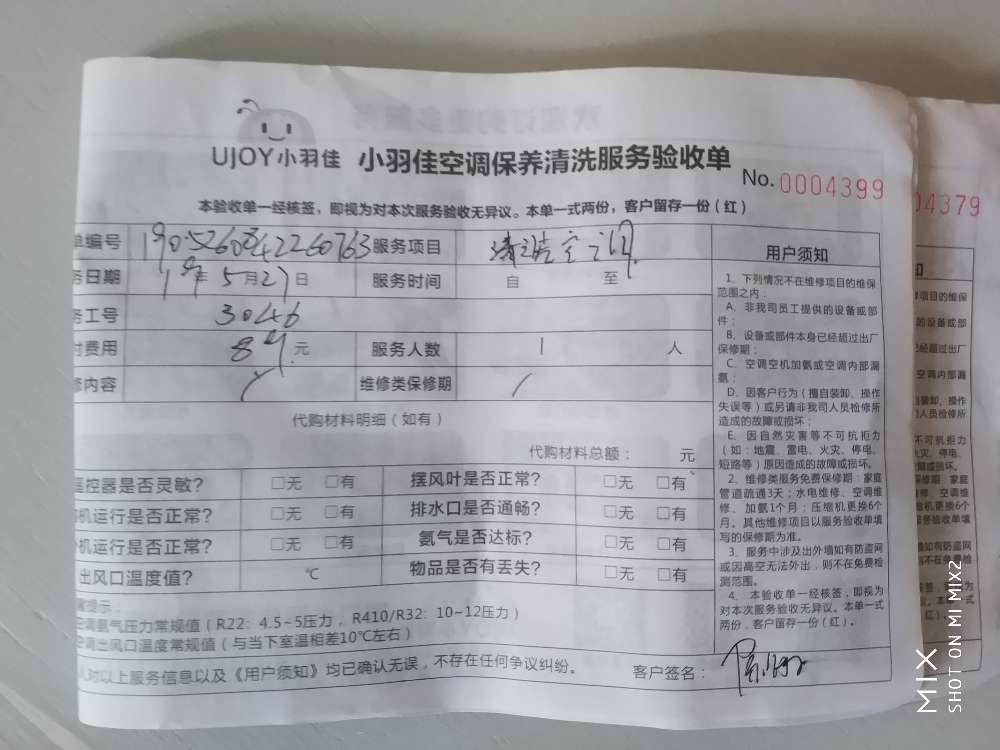 UJOY小羽佳 小羽佳空调保养清洗服务验收单
No. 0004399
本验收单一经核签，即视为对本次服务验收无异议。本单一式两份，客户留存一份（红）
单编号 服务项目 清洁空调
务日期 19年5月27日 服务时间 自 至
务工号 3046
付费用 元 服务人数 1 人
修内容 / 维修类保修期 /
代购材料明细（如有）
代购材料总额： 元
遥控器是否灵敏？ □无 □有 摆风叶是否正常？ □无 □有
机运行是否正常？ □无 □有 排水口是否通畅？ □无 □有
机运行是否正常？ □无 □有 氨气是否达标？ □无 □有
出风口温度值？ ℃ 物品是否有丢失？ □无 □有
提示
空调氨气压力常规值（R22：4.5~5压力，R410/R32：10~12压力）
空调出风口温度常规值（与当下室温相差10℃左右）
人对以上服务信息以及《用户须知》均已确认无误，不存在任何争议纠纷。
客户签名：
用户须知
1、下列情况不在维修项目的维保
范围之内：
A、非我司员工提供的设备或部
件；
B、设备或部件本身已经超过出厂
保修期；
C、空调空机加氨或空调内部漏
氨；
D、因客户行为（擅自装卸、操作
失误等）或另请非我司人员检修所
造成的故障或损坏；
E、因自然灾害等不可抗拒力
（如：地震、雷电、火灾、停电、
短路等）原因造成的故障或损坏。
2、维修类服务免费保修期：家庭
管道疏通3天；水电维修、空调维
修、加氨1个月；压缩机更换6个
月。其他维修项目以服务验收单填
写的保修期为准。
3、服务中涉及出外墙如有防盗网
或因高空无法外出，则不在免费检
测范围。
4、本验收单一经核签，即视为
对本次服务验收无异议。本单一式
两份，客户留存一份（红）。
04379
MIX
SHOT ON MI MIX2